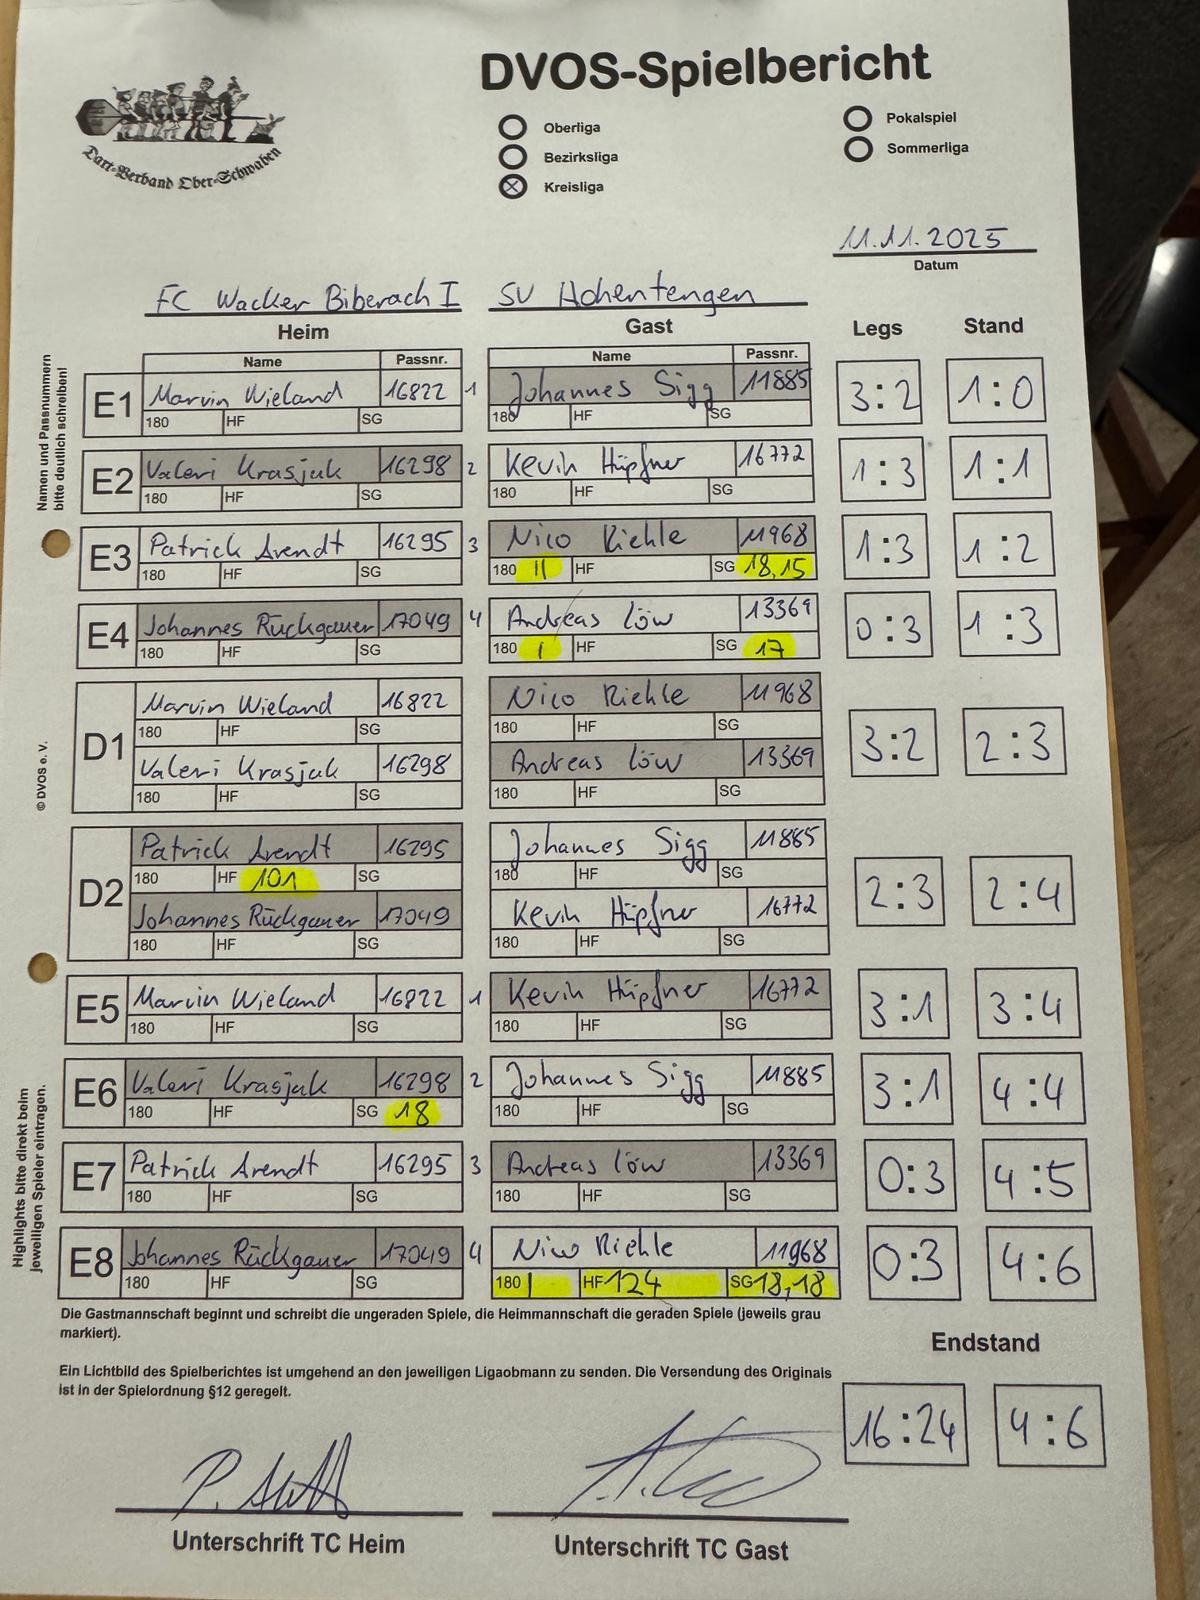 DVOS-Spielbericht
Dart-Verband Ober-Schwaben
Oberliga
Bezirksliga
Kreisliga
Pokalspiel
Sommerliga
11.11.2025
Datum
FC Wacker Biberach I SV Hohentengen
Heim Gast Legs Stand
Namen und Passnummern
bitte deutlich schreiben!
Name Passnr. Name Passnr.
E1 Marvin Wieland 16822 1 Johannes Sigg 11885 3:2 1:0
180 HF SG 180 HF SG
E2 Valeri Krasjuk 16298 2 Kevin Hüpfner 16772 1:3 1:1
180 HF SG 180 HF SG
E3 Patrick Arendt 16295 3 Nico Riehle 11968 1:3 1:2
180 HF SG 180 II HF SG 18,15
E4 Johannes Rückgauer 17049 4 Andreas Löw 13369 0:3 1:3
180 HF SG 180 I HF SG 17
D1 Marvin Wieland 16822 Nico Riehle 11968 3:2 2:3
180 HF SG 180 HF SG
Valeri Krasjuk 16298 Andreas Löw 13369
180 HF SG 180 HF SG
© DVOS e.V.
D2 Patrick Arendt 16295 Johannes Sigg 11885 2:3 2:4
180 HF 101 SG 180 HF SG
Johannes Rückgauer 17049 Kevin Hüpfner 16772
180 HF SG 180 HF SG
E5 Marvin Wieland 16822 1 Kevin Hüpfner 16772 3:1 3:4
180 HF SG 180 HF SG
E6 Valeri Krasjuk 16298 2 Johannes Sigg 11885 3:1 4:4
180 HF SG 18 180 HF SG
E7 Patrick Arendt 16295 3 Andreas Löw 13369 0:3 4:5
180 HF SG 180 HF SG
E8 Johannes Rückgauer 17049 4 Nico Riehle 11968 0:3 4:6
180 HF SG 180 I HF 124 SG 18,18
Highlights bitte direkt beim
jeweiligen Spieler eintragen.
Die Gastmannschaft beginnt und schreibt die ungeraden Spiele, die Heimmannschaft die geraden Spiele (jeweils grau
markiert).
Endstand
Ein Lichtbild des Spielberichtes ist umgehend an den jeweiligen Ligaobmann zu senden. Die Versendung des Originals
ist in der Spielordnung §12 geregelt.
16:24 4:6
Unterschrift TC Heim Unterschrift TC Gast